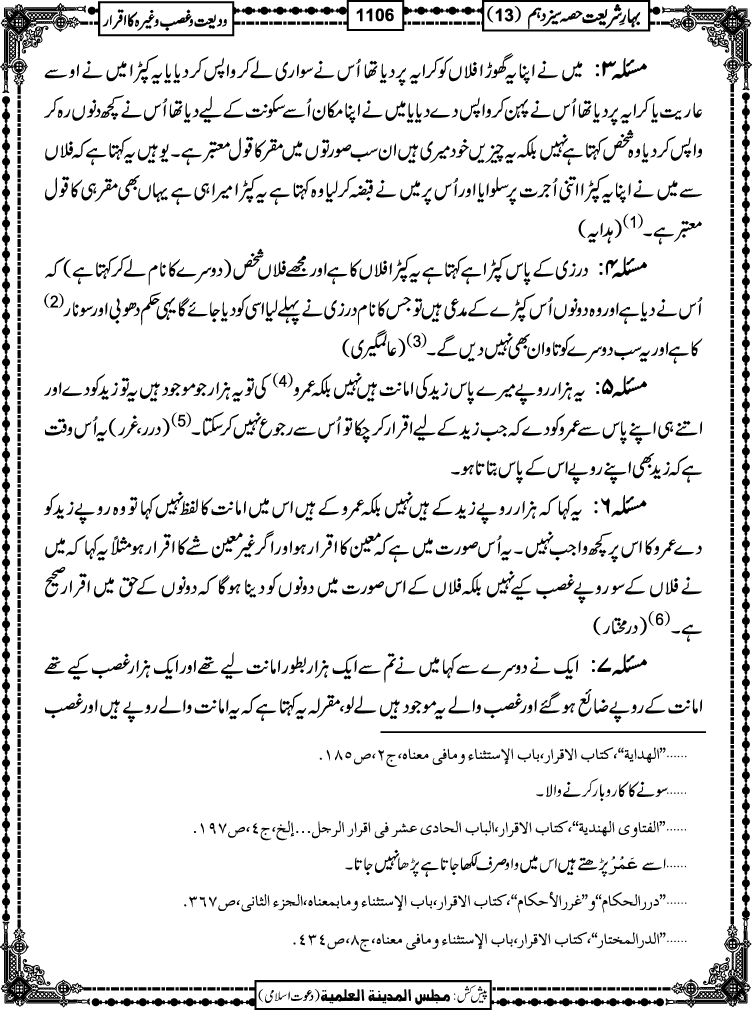 بہارِ شریعت حصہ سیزدہم (13)
1106
ودیعت و غصب وغیرہ کا اقرار
مسئلہ ۳: میں نے اپنا یہ گھوڑا فلاں کو کرایہ پر دیا تھا اُس نے سواری لے کر واپس کر دیا یا یہ کپڑا میں نے اوسے
عاریت یا کرایہ پر دیا تھا اُس نے پہن کر واپس دے دیا یا میں نے اپنا مکان اُسے سکونت کے لیے دیا تھا اُس نے کچھ دنوں رہ کر
واپس کر دیا وہ شخص کہتا ہے نہیں بلکہ یہ چیزیں خود میری ہیں ان سب صورتوں میں مقر کا قول معتبر ہے۔ یوہیں یہ کہتا ہے کہ فلاں
سے میں نے اپنا یہ کپڑا اتنی اُجرت پر سلوایا اور اُس پر میں نے قبضہ کر لیا وہ کہتا ہے یہ کپڑا میرا ہی ہے یہاں بھی مقر ہی کا قول
معتبر ہے۔(1) (ہدایہ)
مسئلہ ۴: درزی کے پاس کپڑا ہے کہتا ہے یہ کپڑا فلاں کا ہے اور مجھے فلاں شخص (دوسرے کا نام لے کر کہتا ہے) کہ
اُس نے دیا ہے اور وہ دونوں اُس کپڑے کے مدعی ہیں تو جس کا نام درزی نے پہلے لیا اسی کو دیا جائے گا یہی حکم دھوبی اور سونار (2)
کا ہے اور یہ سب دوسرے کو تاوان بھی نہیں دیں گے۔(3) (عالمگیری)
مسئلہ ۵: یہ ہزار روپے میرے پاس زید کی امانت ہیں نہیں بلکہ عمرو (4) کی تو یہ ہزار جو موجود ہیں یہ تو زید کو دے اور
اتنے ہی اپنے پاس سے عمرو کو دے کہ جب زید کے لیے اقرار کر چکا تو اُس سے رجوع نہیں کر سکتا۔(5) (درر، غرر) یہ اُس وقت
ہے کہ زید بھی اپنے روپے اس کے پاس بتاتا ہو۔
مسئلہ ۶: یہ کہا کہ ہزار روپے زید کے ہیں نہیں بلکہ عمرو کے ہیں اس میں امانت کا لفظ نہیں کہا تو وہ روپے زید کو
دے عمرو کا اس پر کچھ واجب نہیں۔ یہ اُس صورت میں ہے کہ معین کا اقرار ہو اور اگر غیر معین شے کا اقرار ہو مثلاً یہ کہا کہ میں
نے فلاں کے سو روپے غصب کیے نہیں بلکہ فلاں کے اس صورت میں دونوں کو دینا ہوگا کہ دونوں کے حق میں اقرار صحیح
ہے۔(6) (درمختار)
مسئلہ ۷: ایک نے دوسرے سے کہا میں نے تم سے ایک ہزار بطور امانت لیے تھے اور ایک ہزار غصب کیے تھے
امانت کے روپے ضائع ہو گئے اور غصب والے یہ موجود ہیں لے لو، مقرلہ یہ کہتا ہے کہ یہ امانت والے روپے ہیں اور غصب
......"الهداية"، كتاب الاقرار، باب الإستثناء ومافى معناه، ج٢، ص١٨٥.
......سونے کا کاروبار کرنے والا۔
......"الفتاوى الهندية"، كتاب الاقرار، الباب الحادى عشر فى اقرار الرجل...إلخ، ج٤، ص١٩٧.
......اسے عَمْرْ پڑھتے ہیں اس میں واو صرف لکھا جاتا ہے پڑھا نہیں جاتا۔
......"دررالحكام" و"غررالأحكام"، كتاب الاقرار، باب الإستثناء ومابمعناه، الجزء الثانى، ص٣٦٧.
......"الدرالمختار"، كتاب الاقرار، باب الإستثناء ومافى معناه، ج٨، ص٤٣٤.
پیش کش: مجلس المدينة العلمية (دعوت اسلامی)